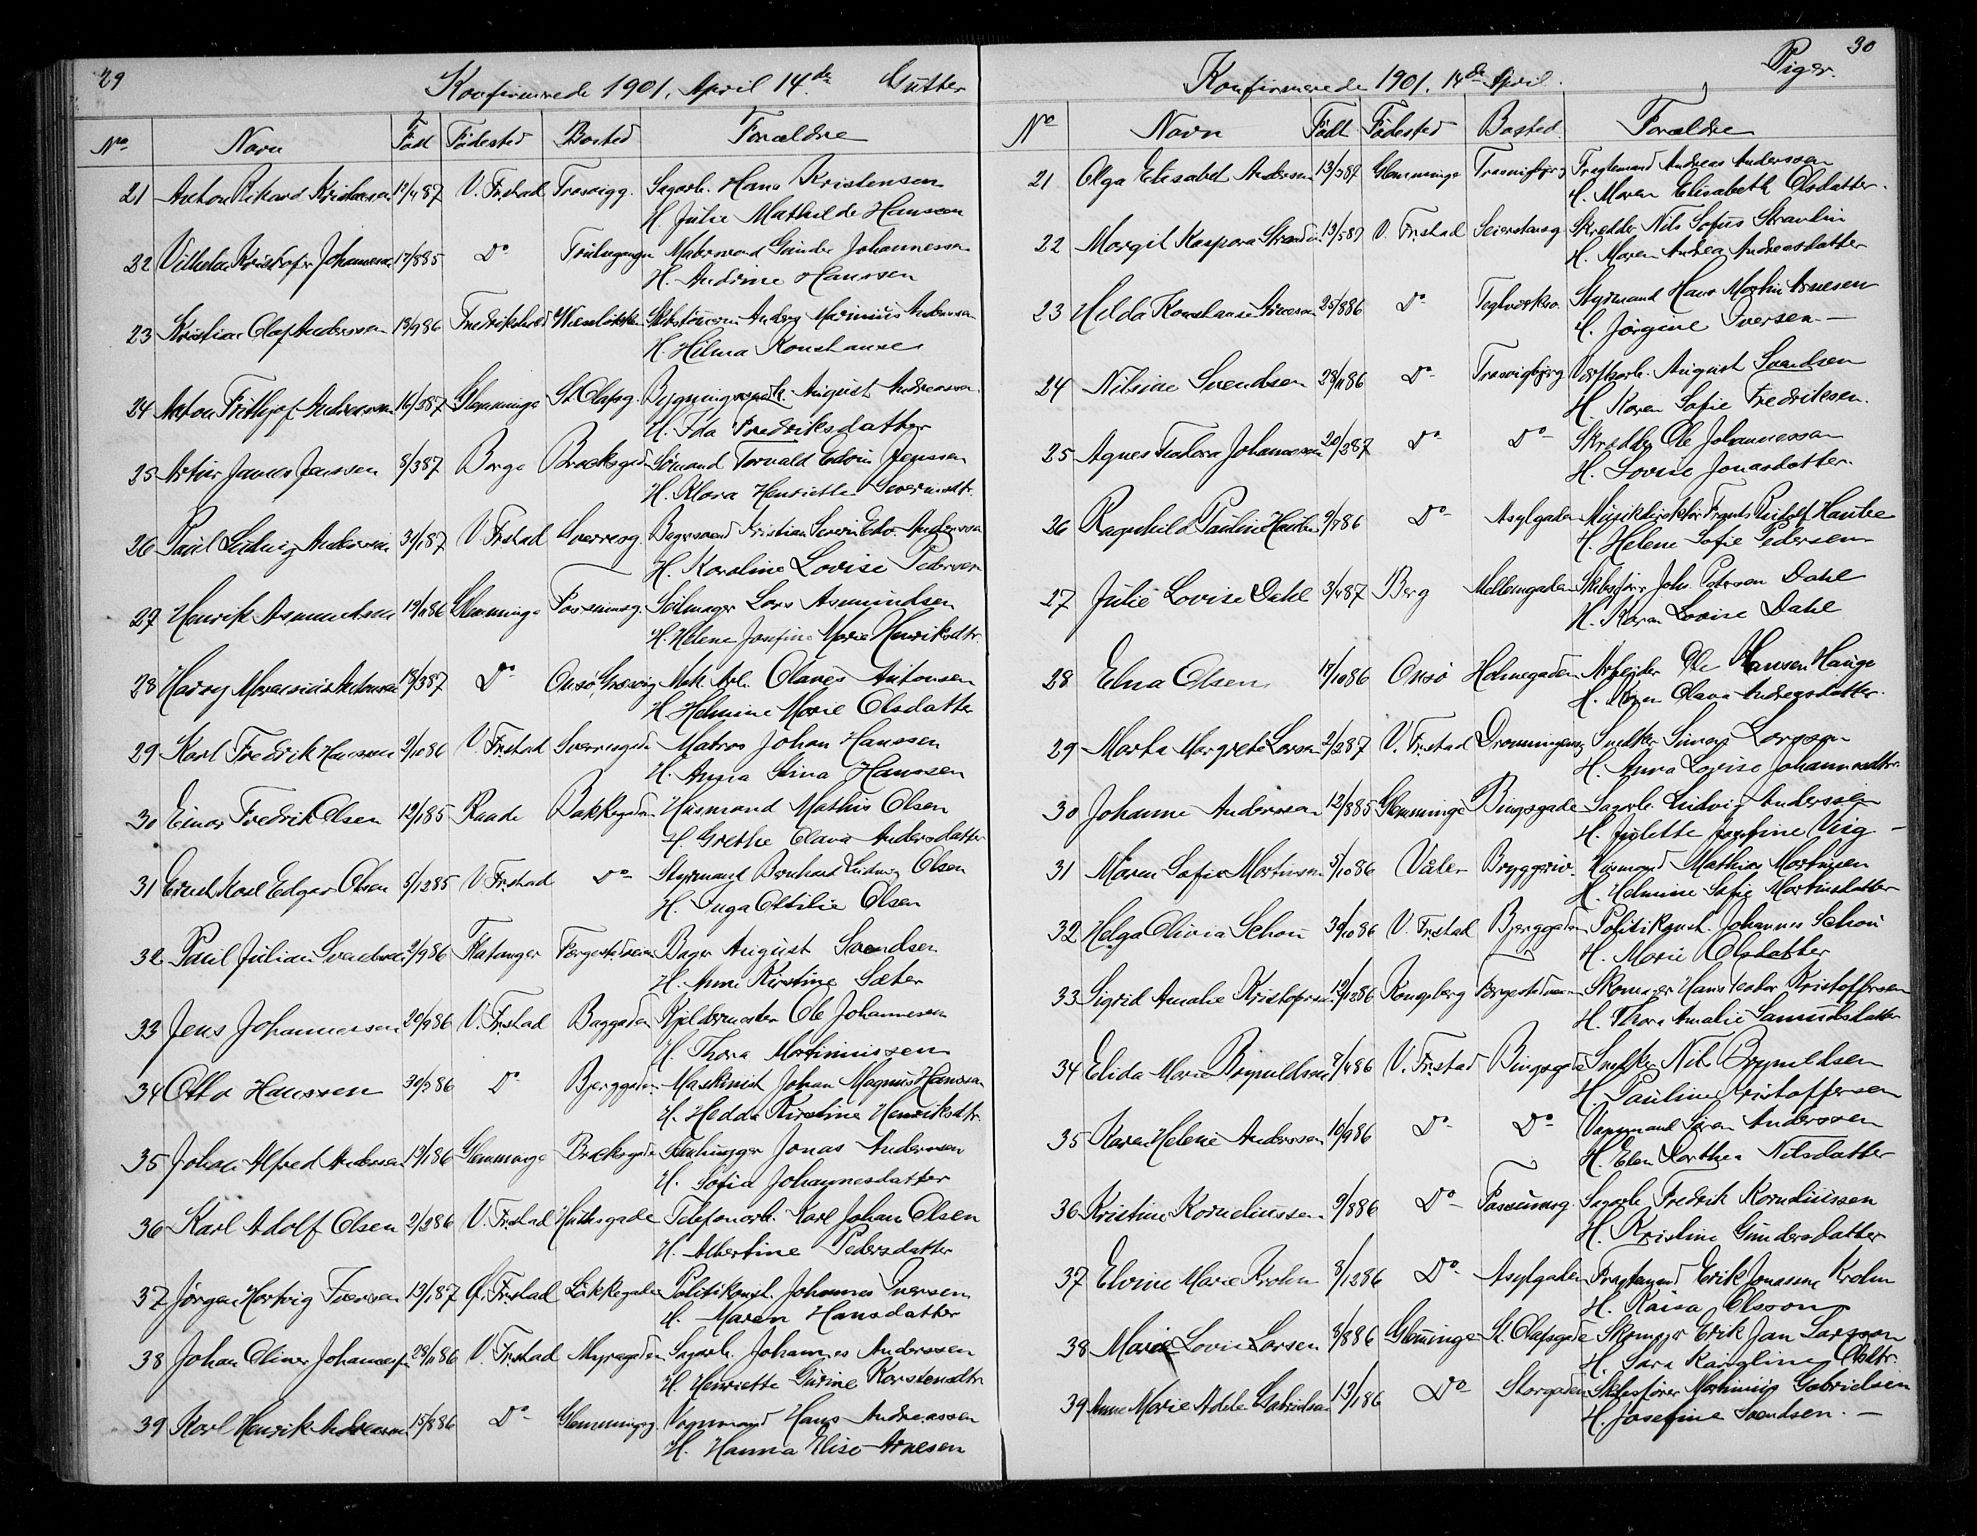 29
Konfirmerede 1901. April 14de Gutter
No Navn Født Fødested Bosted Forældre
21 Anton Rikard Kristensen 17/4 87 V. Frstad Trosvigg. Sagarb. Hans Kristensen
H. Julie Mathilde Hansen
22 Vilhelm Kristofer Johannesen 17/8 85 Do Malersvend Gunder Johannessen
H. Andrine Hanssen
23 Kristian Olaf Anderssen 13/9 86 Fredrikshald Anders Marinius Anderssen
H. Hilma Konstanse
24 Anton Frithjof Andreassen 16/2 87 Glemminge St. Olafsg. Bygningssnedk. August Andreassen
H. Ida Fredriksdatter
25 Artur James Jenssen 8/3 87 Borge Brocksgaden Sømand Torvald Edvin Jenssen
H. Klara Henriette Severinsdtr.
26 Paul Ludvig Anderssen 31/1 87 V. Frstad Sverresg. Bagersvend Kristian Severin Edv. Anderssen
H. Karoline Lovise Pedersen
27 Henrik Asmundsen 19/11 86 Glemminge Fossumsg. Seilmager Lars Asmundsen
H. Helene Josefine Marie Henriksdtr.
28 Harry Marensius Antonsen 18/3 87 Do Onsø, Gressvig Mek. Arb. Olaves Antonsen
H. Helmine Marie Olsdatter
29 Karl Fredrik Hanssen 2/10 86 V. Frstad Sverresgaden Matros Johan Hanssen
H. Anna Stina Hanssen
30 Einar Fredrik Olsen 19/1 85 Raade Bakkegaden Husmand Mathis Olsen
H. Grethe Olava Andersdatter
31 Ernst Karl Edgar Olsen 8/12 85 V. Frstad Do Styrmand Bernhard Ludvig Olsen
H. Inga Ottilie Olsen
32 Paul Julian Svendsen 2/9 86 Flatanger Færgestedsveien Bager August Svendsen
H. Anne Kirstine Sæter
33 Jens Johannessen 20/9 86 V. Frstad Baggaden Kjeldermester Ole Johannesen
H. Thora Martiniussen
34 Otto Hanssen 30/3 86 Do Bjerggaden Maskinist Johan Magnus Hanssen
H. Hedda Kirstine Henriksdtr.
35 Johan Alfred Andersen 19/1 86 Glemminge Brocksgaden Stenhugger Jonas Anderssen
H. Sofia Johannesdatter
36 Karl Adolf Olsen 2/2 86 V. Frstad Huthsgade Telefonarb. Karl Johan Olsen
H. Albertine Pedersdatter
37 Jørgen Hertvig Iversen 13/1 87 G. Frstad Løkkegaden Politikonst. Johannes Iversen
H. Maren Hansdatter
38 Johan Oliver Johannesen 28/11 86 V. Frstad Myragaden Sagarb. Johannes Anderssen
H. Henriette Gurine Karstensdtr.
39 Karl Henrik Andreassen 15/8 86 Do Glemmingeg. Vognmand Hans Andreassen
H. Hanna Elise Arnesen
30
Konfirmerede 1901. 14de April. Piger.
No Navn Født Fødested Bosted Forældre
21 Olga Elisabet Anderssen 13/3 87 Glemminge Trosvigbjerg Fragtemand Andreas Anderssen
H. Maren Elisabeth Olsdatter.
22 Margit Kaspara 13/5 87 V. Frstad Seierstensg. Skredder Nils Sofus
H. Maren Andrea Andreasdatter
23 Hilda Konstanse Arnesen 25/8 86 Do Teglverksv. Styrmand Hans Martin Arnesen
H. Jørgine Iversen —
24 Nilsine Svendsen 28/11 86 Do Trosvigbjerg Værftsarb. August Svendsen
H. Karen Sofie Fredriksen.
25 Agnes Teodora Johannessen 20/2 87 Do Do Skredder Ole Johannessen
H. Lovise Jonasdatter.
26 Ragnhild Pauline 9/7 86 Do Asylgaden Musikdirektør Frants Rudolf
H. Helene Sofie Pedersen
27 Julie Lovise Dahl 3/4 87 Berg Mellemgaden Skibsfører Joh. Petersen Dahl
H. Karen Lovise Dahl
28 Elna Olsen 17/10 86 Onsø Holmegaden Arbeider Ole Hansen Hauge
H. Karen Olava Andreasdatter.
29 Marta Margrete Larsen 2/2 87 V. Frstad Dronningensg. Snedker Simon Larssen
H. Anna Lovise Johannesdtr.
30 Johanne Anderssen 12/8 85 Glemminge Bingsgade Sagarb. Ludvig Anderssen
H. Julette Josefine Viig —
31 Maren Sofie Martinsen 5/10 86 Våler Bryggeriv. Husmand Mathias Martinsen
H. Helmine Sofie Martinsdatter
32 Helga Olivia Schou 30/10 86 V. Frstad Bjerggaden Politikonst. Johannes Schou
H. Marie Olsdatter
33 Sigrid Amalie Kristofersen 19/12 86 Kongsberg Færgestedsveien Skomager Hans Teodor Kristoffersen
H. Thora Amalie Samuelsdatter
34 Elida Marie Brynildsen 8/4 86 V. Frstad Bingsgade Snedker Nils Brynildsen
H. Pauline Kristoffersen
35 Karen Helene Anderssen 10/9 86 Do Do Vognmand Søren Anderssen
H. Elen Dorthea Nilsdatter
36 Kristine Korneliussen 9/8 86 Do Fossumsg. Sagarb. Fredrik Korneliussen
H. Kristine Gundersdatter
37 Elvine Marie Krohn 8/12 86 Do Asylgaden Fragtemand Erik Jonassen Krohn
H. Kaisa Olsson
38 Marie Lovise Larsen 8/8 86 Glemminge St. Olafsgade Skomager Erik Jan Larsson
H. Sara Karoline Olsdtr.
39 Anne Marie Adele Gabrielsen 13/1 86 Do Storgaden Skibsfører Martinius Gabrielsen
H. Josefine Svendsen. —